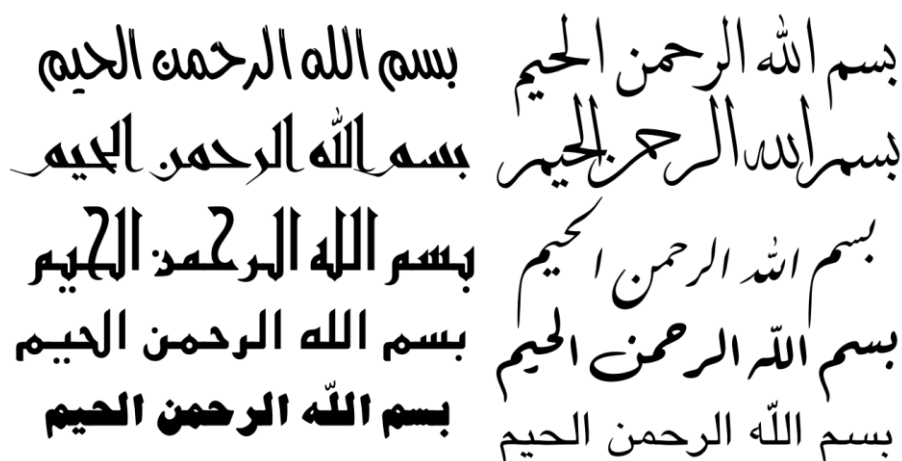 بسم الله الرحمن الحيم
بسم الله الرحمن الحيم
بسم الله الرحمن الحيم
بسم اللّه الرحمن الحيم
بسم اللّه الرحمن الحيم
بسم الله الرحمن الحيم
بسم الله الرحمن الحيم
بسم الله الرحمن الحيم
بسم الله الرحمن الحيم
بسم اللّه الرحمن الحيم